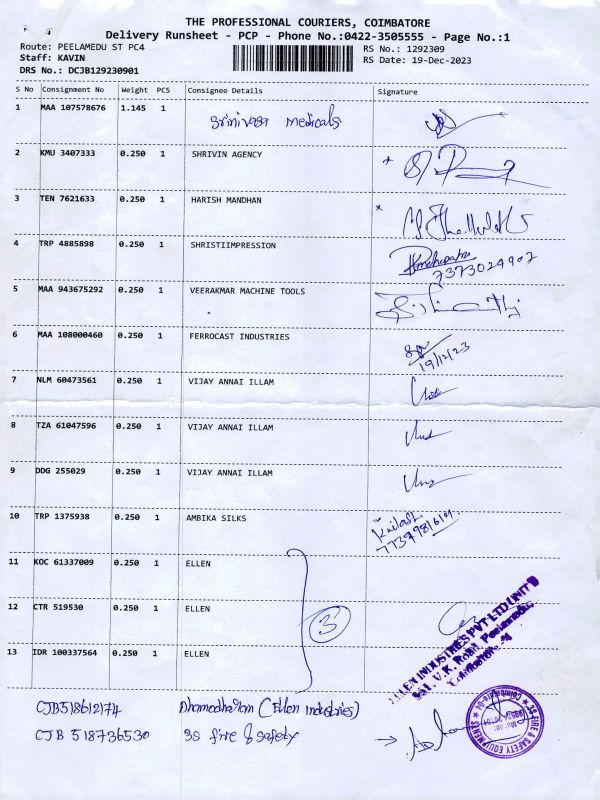 THE PROFESSIONAL COURIERS, COIMBATORE
Delivery Runsheet - PCP - Phone No.:0422-3505555 - Page No.:1
Route: PEELAMEDU ST PC4 RS No.: 1292309
Staff: KAVIN RS Date: 19-Dec-2023
DRS No.: DCJB129230901
S No Consignment No Weight PCS Consignee Details Signature
1 MAA 107578676 1.145 1 Srinivasa medicals
2 KMU 3407333 0.250 1 SHRIVIN AGENCY
3 TEN 7621633 0.250 1 HARISH MANDHAN
4 TRP 4885898 0.250 1 SHRISTIIMPRESSION
7373024907
5 MAA 943675292 0.250 1 VEERAKMAR MACHINE TOOLS
6 MAA 108000460 0.250 1 FERROCAST INDUSTRIES
19/12/23
7 NLM 60473561 0.250 1 VIJAY ANNAI ILLAM
8 TZA 61047596 0.250 1 VIJAY ANNAI ILLAM
9 DDG 255029 0.250 1 VIJAY ANNAI ILLAM
10 TRP 1375938 0.250 1 AMBIKA SILKS Kailash
11 KOC 61337009 0.250 1 ELLEN
12 CTR 519530 0.250 1 ELLEN 3
13 IDR 100337564 0.250 1 ELLEN
ELLEN INDUSTRIES PVT LTD UNIT II
V.K. Road, Peelamedu,
Coimbatore - 4
CJB518612174 Dhamodharan (Ellen Industries)
CJB 518736530 3s fire & safety
FIRE & SAFETY EQUIPMENT
Coimbatore-04